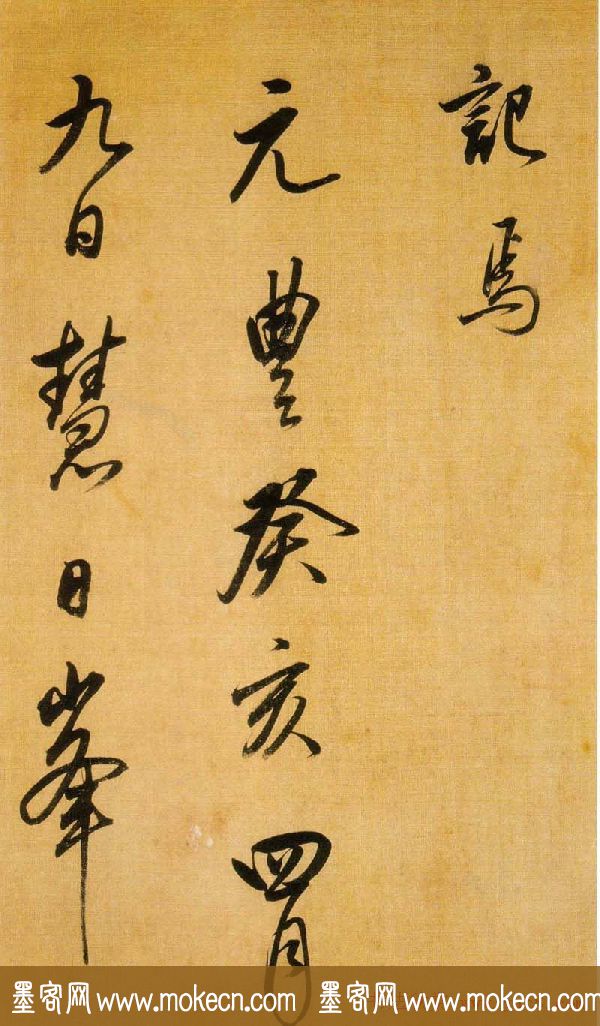 記焉
元豐癸亥四月
九日慧日峯
墨客网 www.mokecn.com 墨客网 www.mokecn.com